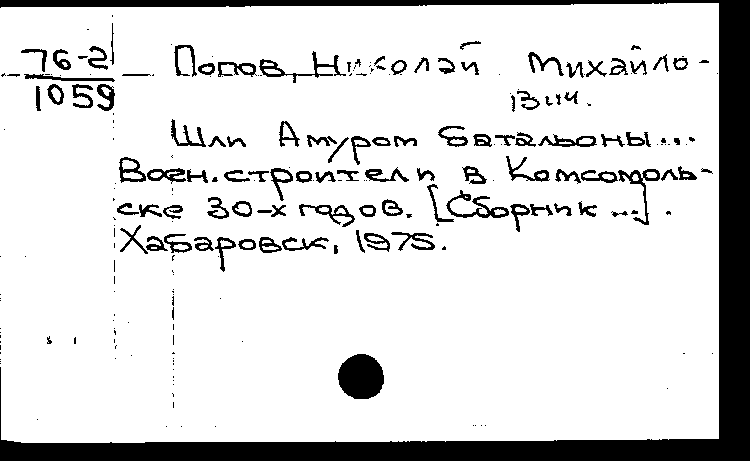 76-2
1059
Попов, Николай Михайло-
вич.
Шли Амуром батальоны...
Воен. строители в Комсомоль-
ске 30-х годов. [Сборник ...].
Хабаровск, 1975.